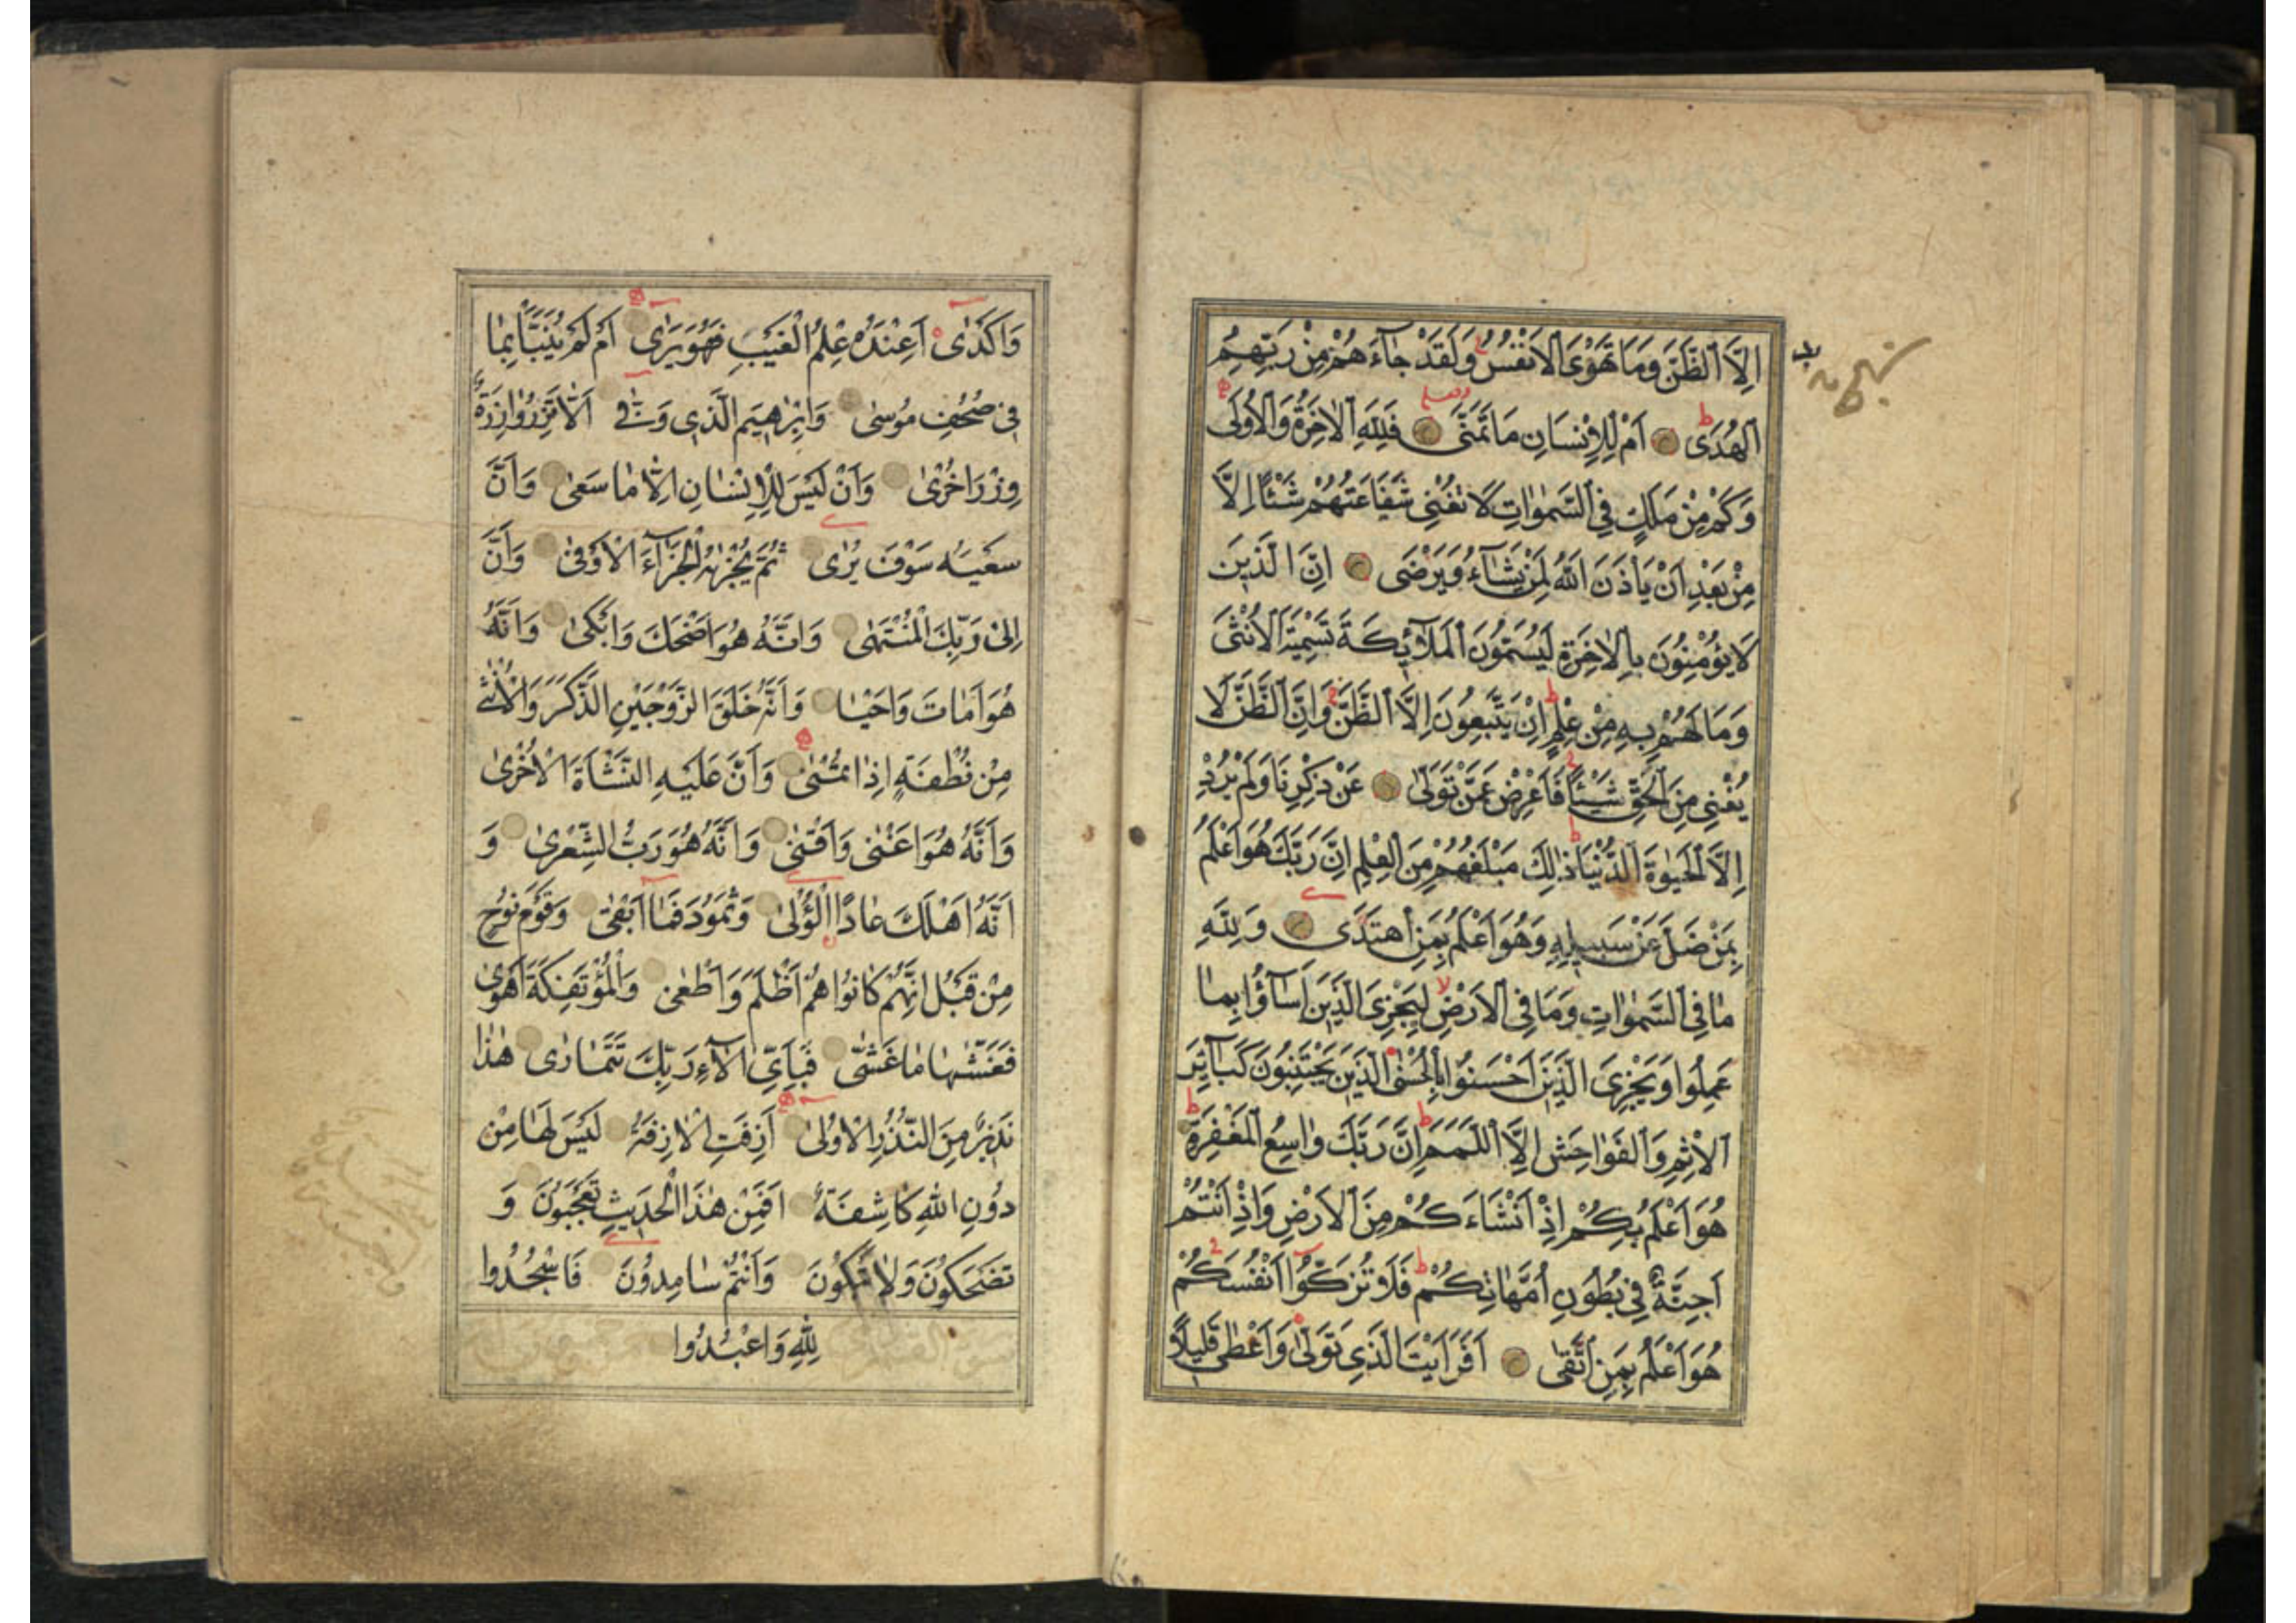 اِلَّا ٱلظَّنَّ وَمَا تَهْوَى ٱلاَنْفُسُ وَلَقَدْ جَآءَهُمْ مِنْ رَبِّهِمُ
ٱلْهُدَى اَمْ لِلْاِنْسَانِ مَا تَمَنَّى فَلِلّٰهِ ٱلاٰخِرَةُ وَالْاُولَى
وَكَمْ مِنْ مَلَكٍ فِي ٱلسَّمٰوَاتِ لَا تُغْنِى شَفَاعَتُهُمْ شَيْئًا اِلَّا
مِنْ بَعْدِ اَنْ يَاْذَنَ اللّٰهُ لِمَنْ يَشَآءُ وَيَرْضَى اِنَّ الَّذِينَ
لَا يُؤْمِنُونَ بِالْاٰخِرَةِ لَيُسَمُّونَ ٱلْمَلَآئِكَةَ تَسْمِيَةَ ٱلْاُنْثَى
وَمَا لَهُمْ بِهِ مِنْ عِلْمٍ اِنْ يَتَّبِعُونَ اِلَّا ٱلظَّنَّ وَاِنَّ ٱلظَّنَّ لَا
يُغْنِى مِنَ ٱلْحَقِّ شَيْئًا فَاَعْرِضْ عَمَّنْ تَوَلّٰى عَنْ ذِكْرِنَا وَلَمْ يُرِدْ
اِلَّا ٱلْحَيٰوةَ ٱلدُّنْيَا ذٰلِكَ مَبْلَغُهُمْ مِنَ ٱلْعِلْمِ اِنَّ رَبَّكَ هُوَ اَعْلَمُ
بِمَنْ ضَلَّ عَنْ سَبِيلِهِ وَهُوَ اَعْلَمُ بِمَنِ ٱهْتَدَى وَلِلّٰهِ
مَا فِي ٱلسَّمٰوَاتِ وَمَا فِي ٱلْاَرْضِ لِيَجْزِىَ الَّذِينَ اَسَآؤُا بِمَا
عَمِلُوا وَيَجْزِىَ الَّذِينَ اَحْسَنُوا بِالْحُسْنَى الَّذِينَ يَجْتَنِبُونَ كَبَآئِرَ
ٱلْاِثْمِ وَٱلْفَوَاحِشَ اِلَّا ٱللَّمَمَ اِنَّ رَبَّكَ وَاسِعُ ٱلْمَغْفِرَةِ
هُوَ اَعْلَمُ بِكُمْ اِذْ اَنْشَاَكُمْ مِنَ ٱلْاَرْضِ وَاِذْ اَنْتُمْ
اَجِنَّةٌ فِي بُطُونِ اُمَّهَاتِكُمْ فَلَا تُزَكُّوا اَنْفُسَكُمْ
هُوَ اَعْلَمُ بِمَنِ ٱتَّقٰى اَفَرَاَيْتَ الَّذِى تَوَلّٰى وَاَعْطٰى قَلِيلًا
وَاَكْدٰى اَعِنْدَهُ عِلْمُ الْغَيْبِ فَهُوَ يَرٰى اَمْ لَمْ يُنَبَّاْ بِمَا
فِى صُحُفِ مُوسٰى وَاِبْرٰهِيمَ الَّذِى وَفّٰى اَلَّا تَزِرُ وَازِرَةٌ
وِزْرَ اُخْرٰى وَاَنْ لَيْسَ لِلْاِنْسَانِ اِلَّا مَا سَعٰى وَاَنَّ
سَعْيَهُ سَوْفَ يُرٰى ثُمَّ يُجْزٰيهُ الْجَزَآءَ الْاَوْفٰى وَاَنَّ
اِلٰى رَبِّكَ الْمُنْتَهٰى وَاَنَّهُ هُوَ اَضْحَكَ وَاَبْكٰى وَاَنَّهُ
هُوَ اَمَاتَ وَاَحْيَا وَاَنَّهُ خَلَقَ الزَّوْجَيْنِ الذَّكَرَ وَالْاُنْثٰى
مِنْ نُطْفَةٍ اِذَا تُمْنٰى وَاَنَّ عَلَيْهِ النَّشْاَةَ الْاُخْرٰى
وَاَنَّهُ هُوَ اَغْنٰى وَاَقْنٰى وَاَنَّهُ هُوَ رَبُّ الشِّعْرٰى وَ
اَنَّهُ اَهْلَكَ عَادًا الْاُولٰى وَثَمُودَ فَمَا اَبْقٰى وَقَوْمَ نُوحٍ
مِنْ قَبْلُ اِنَّهُمْ كَانُوا هُمْ اَظْلَمَ وَاَطْغٰى وَالْمُؤْتَفِكَةَ اَهْوٰى
فَغَشّٰيهَا مَا غَشّٰى فَبِاَىِّ اٰلَآءِ رَبِّكَ تَتَمَارٰى هٰذَا
نَذِيرٌ مِنَ النُّذُرِ الْاُولٰى اَزِفَتِ الْاٰزِفَةُ لَيْسَ لَهَا مِنْ
دُونِ اللّٰهِ كَاشِفَةٌ اَفَمِنْ هٰذَا الْحَدِيثِ تَعْجَبُونَ وَ
تَضْحَكُونَ وَلَا تَبْكُونَ وَاَنْتُمْ سَامِدُونَ فَاسْجُدُوا
لِلّٰهِ وَاعْبُدُوا